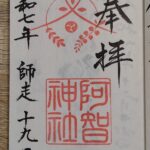 奉拝
阿智
神社
和七年 師走 十九